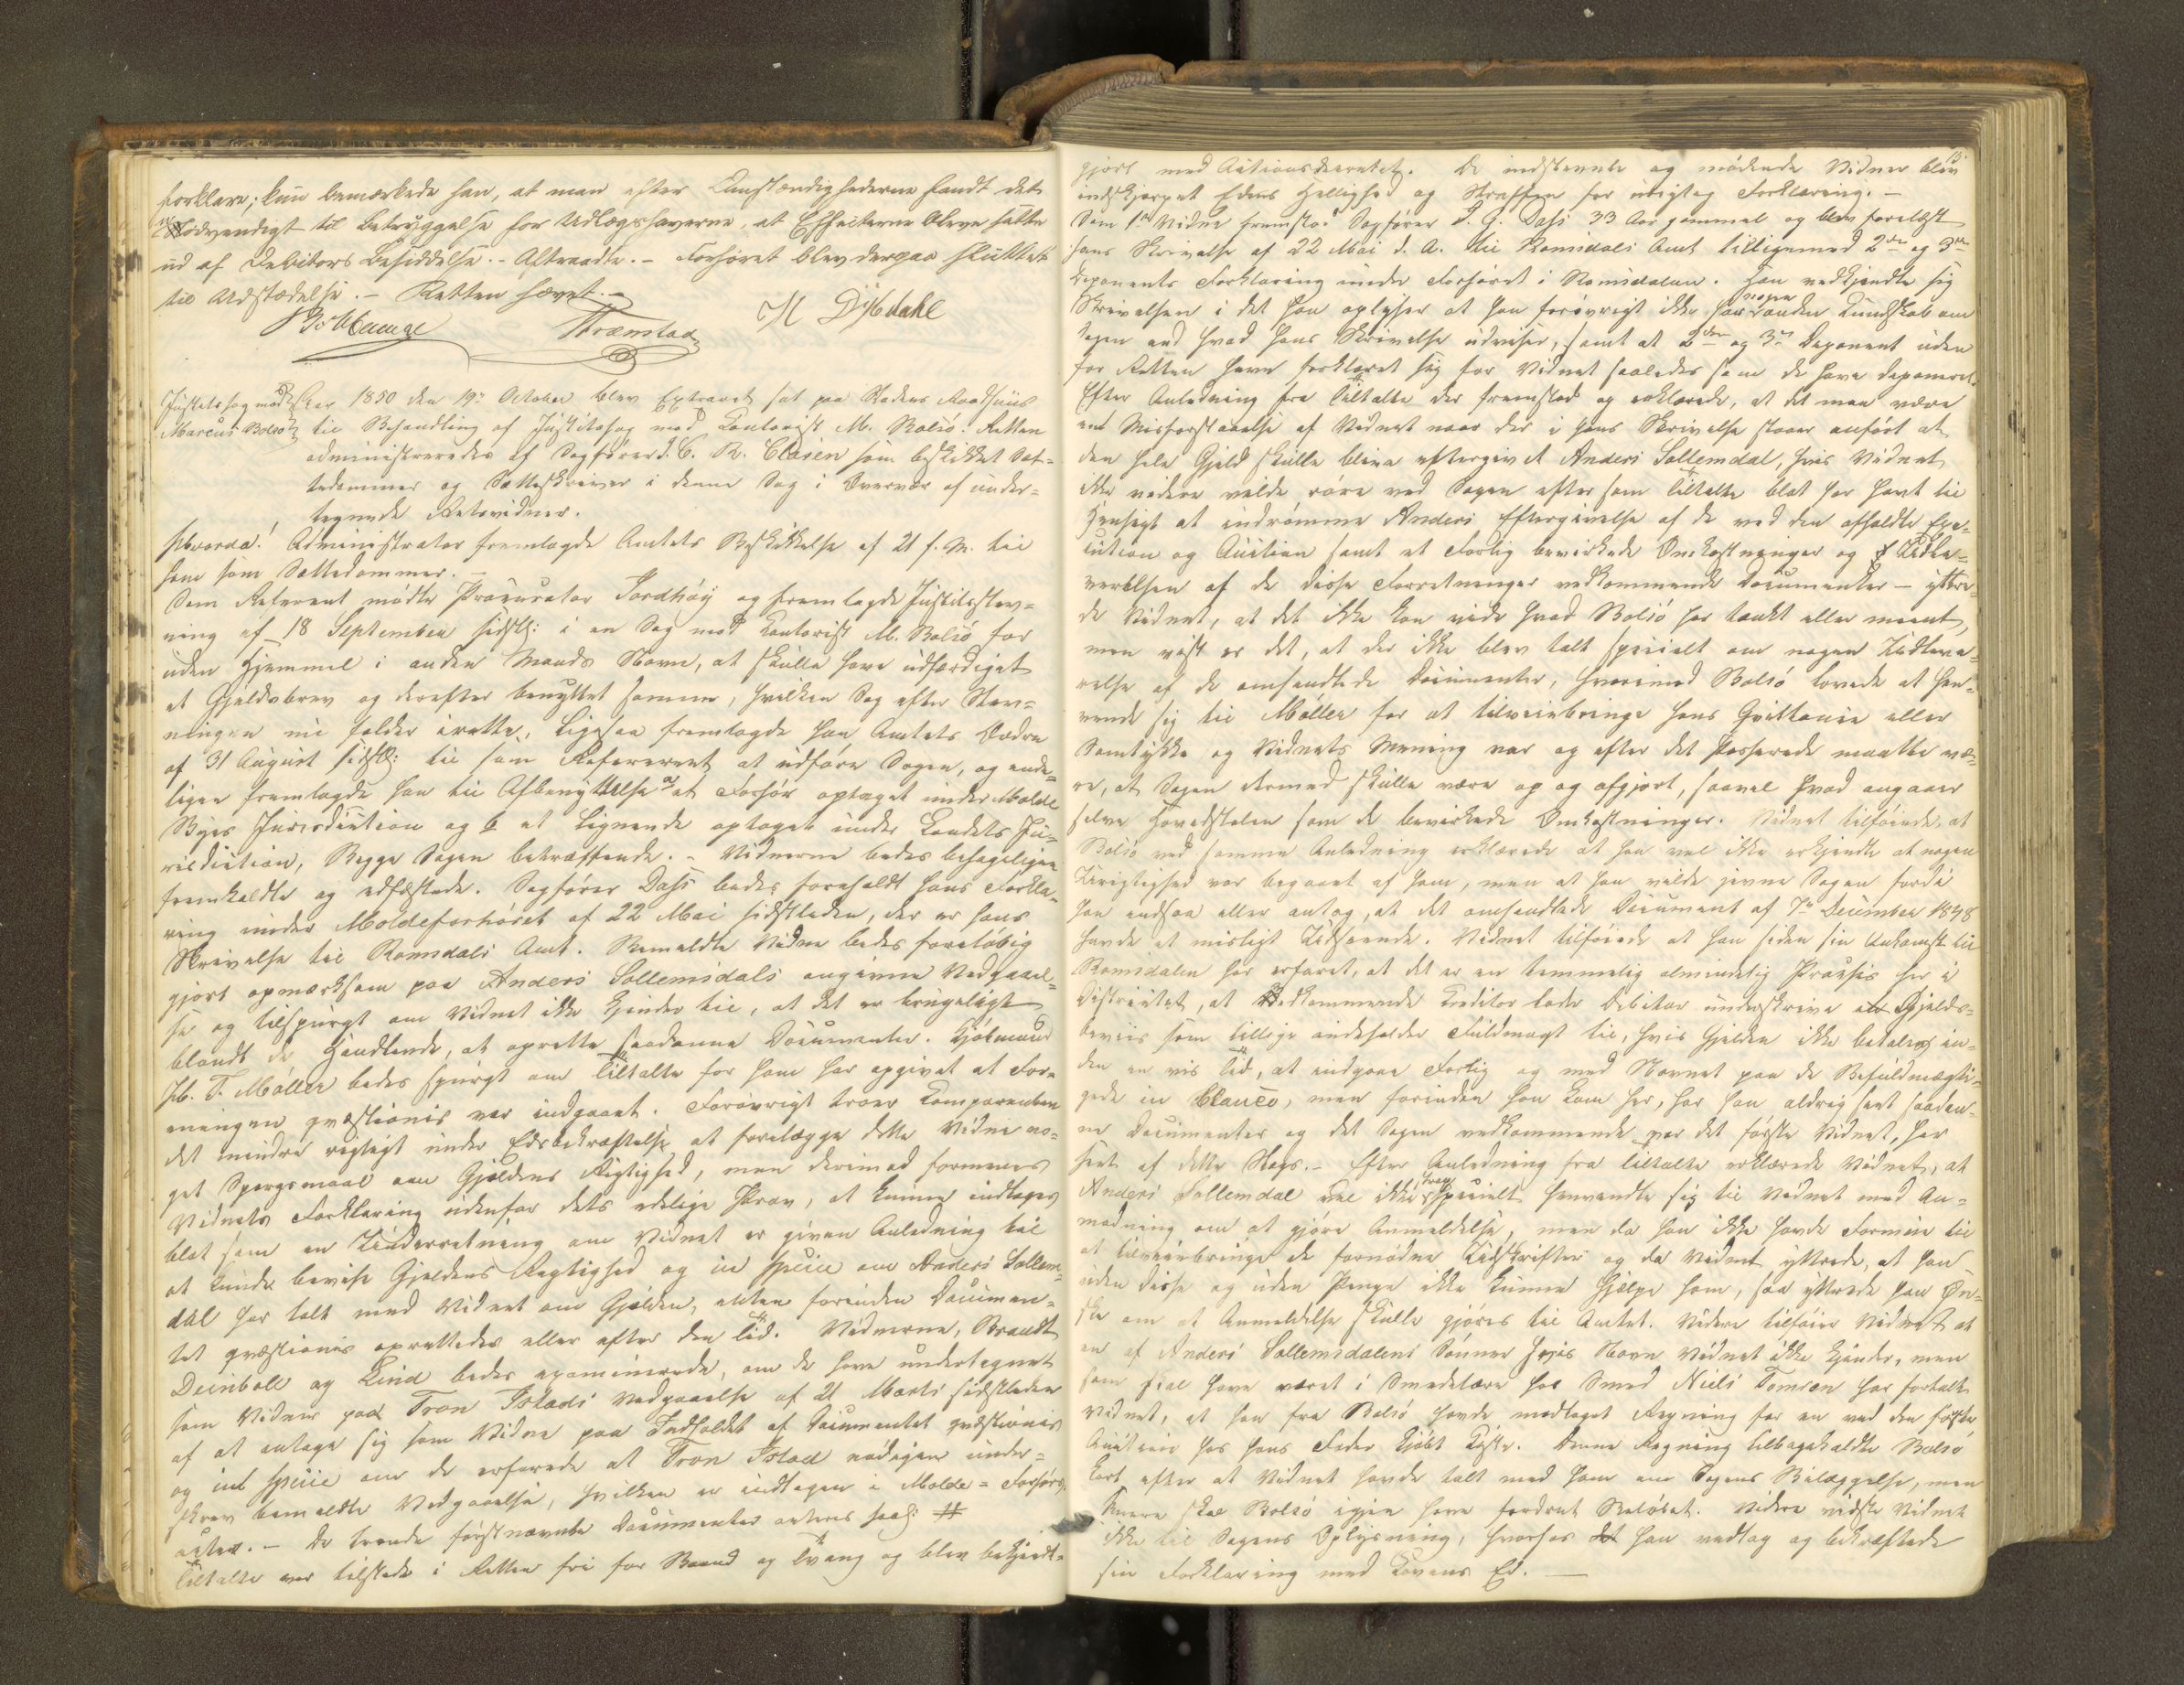 forklare; kun bemærkede han, at man efter Omstændighederne fandt det
nødvendigt til Betryggelse for Udlægshaverne, at Effecterne bleve satte
ud af Debitors Besiddelse. - Aftraadte. - Forhøret blev derpaa sluttet
til Udstædelse. - Retten hævet. -
H Dybdahl
Thræmstad
Justitssag mod
Marcus Bolsø
Aar 1850 den 19de October blev Extraret sat paa Stadens Raadhuus
til Behandling af Justitssag mod Contorist M. Bolsø. Retten
administreredes af Sagfører J. C. R. Clasen som beskikket Sæt-
tedommer og Sætteskriver i denne Sag i Overvær af under-
tegnede Retsvidner.
Hvorda! Administrator fremlagde Amtets Beskikkelse af 21 f. M. til
ham som Sættedommer. -
Som Referent mødte Procurator Sordhøy og fremlagde Justitsstev-
ning af 18 September sidstl: i en Sag mod Contorist M. Bolsø for
uden Hjemmel i anden Mands Navn, at skulle have udfærdiget
et Gjeldsbrev og derefter benyttet samme, hvilken Sag efter Stev-
ningen nu falder irette. Ligesaa fremlagde han Amtets Ordre
af 31 August sidstl: til som Refererent at udføre Sagen, og ende-
ligen fremlagde han til Afbenyttelse a et Forhør optaget under Molde
Byes Jurisdiction og b et Lignende optaget under Landets Ju-
risdiction, Begge Sagen betræffende. - Vidnerne bedes behageligen
fremkaldte og edfæstede. Sagfører Dass bedes foreholdt hans Forkla-
ring under Moldeforhøret af 22 Mai sidstleden, der er hans
Skrivelse til Romsdals Amt. Bemeldte Vidne bedes foreløbig
gjort opmærksom paa Anders Sollemsdals angivne Vedgaael-
se og tilspurgt om Vidnet ikke kjender til, at det er brugeligt
blandt de Handlende, at oprette saadanne Documenter. Kjøbmand
H. T. Møller bedes spurgt om Tiltalte for ham har opgivet at For-
eningen qvæstionis var indgaaet. Forøvrigt troer Comparenten
det mindre rigtigt under Edsbekræftelse at forelægge dette Vidne no-
get Spørgsmaal om Gjældens Rigtighed, men derimod formenes
Vidnets Forklaring udenfor dets edelige Prov, at kunne indtages
blot som en Underretning om Vidnet er given Anledning til
at kunde bevise Gjeldens Rigtighed og in specie om Anders Sollems-
dal har talt med Vidnet om Gjælden, enten forinden Documen-
tet qvæstionis oprettedes eller efter den Tid. Vidnerne, Brandt
Deinboll og Lind bedes examinerede, om de have undertegnet
som Vidner paa Tron Istads Vedgaaelse af 21 Marts sidstleden
af at antage sig som Vidne paa Indholdet af Documentet qvæstionis
og in specie om de erfarede at Tron Istad nødigen under-
skrev bemeldte Vedgaaelse, hvilken er indtagen i Molde-Forhørs-
acten. - De trende førstnævnte Documenter acteres saal: #
Tiltalte var tilstede i Retten fri for Baand og Tvang og blev bekjendt-
gjort med Actionsdecretet. De indstevnte og mødende Vidner blev
indskjerpet Edens Hellighed og Straffen for urigtig Forklaring. -
Som 1ste Vidne fremstod Sagfører J. G. Dass 33 Aar gammel og blev forelæst
hans Skrivelse af 22 Mai d. A. til Romsdals Amt tilligemed 2den og 3die
Deponents Forklaring under Forhøret i Romsdalen. Han vedkjendte sig
Skrivelsen i det han oplyser at han forøvrigt ikke har nogen anden Kundskab om
Sagen end hvad hans Skrivelse udviser, samt at 2den og 3die Deponent uden
for Retten have forklaret sig for Vidnet saaledes som de have deponeret.
Efter Anledning fra Tiltalte der fremstod og erklærede, at det maa være
en Misforstaaelse af Vidnet naar der i hans Skrivelse staaer anført at
den hele Gjeld skulle blive eftergivet Anders Sollemdal, hvis Vidnet
ikke videre vilde røre ved Sagen eftersom Tiltalte blot har havt til
Hensigt at indrømme Anders Eftergivelse af de ved den afholdte Exe-
cution og Auction samt et Forlig bevirkede Omkostninger og Udle-
verelsen af de disse Forretninger vedkommende Documenter - yttre-
de Vidnet, at det ikke kan vide hvad Bolsø har tænkt eller meent,
men vist er det, at der ikke blev talt specielt om nogen Udleve-
relse af de omhandlede Documenter, hvorimod Bolsø lovede at hen-
vende sig til Møller for at tilveiebringe hans Qvittance eller
Samtykke og Vidnets Mening var og efter det Passerede maatte væ-
re, at Sagen dermed skulle være op og afgjort, saavel hvad angaaer
selve Hovedstolen som de bevirkede Omkostninger. Vidnet tilføiede, at
Bolsø ved samme Anledning erklærede at han vel ikke erkjendte at nogen
Urigtighed var begaaet af ham, men at han vilde jevne Sagen fordi
han indsaa eller antog, at det omhandlede Document af 7de December 1848
havde et misligt Udseende. Vidnet tilføiede at han siden sin Ankomst til
Romsdalen har erfaret, at det er en temmelig almindelig Praxis her i
Districtet, at Vedkommende Creditor lader Debitor underskrive Gjelds-
beviis som tillige indeholder Fuldmagt til, hvis Gjelden ikke betales in-
den en vis Tid, at indgaae Forlig og med Navnet paa de Befuldmægti-
gede in blanco, men forinden han kom her, har han aldrig seet saadan-
ne Documenter og det Sagen vedkommende var det første Vidnet, har
seet af dette Slags. - Efter Anledning fra Tiltalte erklærede Vidnet, at
Anders Sollemdal vel ikke specielt henvendte sig til Vidnet med An-
modning om at gjøre Anmeldelse, men da han ikke havde Formue til
at tilveiebringe de fornødne Udskrifter og da Vidnet yttrede, at han
uden disse og uden Penge ikke kunne hjælpe ham, saa yttrede han Øn-
ske om at Anmeldelse skulle gjøres til Amtet. Videre tilføier Vidnet at
en af Anders Sollemsdalens Sønner hvis Navn Vidnet ikke kjender, men
som skal have været i Smedelære hos Smed Niels Tomsen har fortalt
Vidnet, at han fra Bolsø havde modtaget Regning for en ved den første
Auction hos hans Fader kjøbt Hest. Denne Regning tilbagekaldte Bolsø
kort efter at Vidnet havde talt med ham om Sagens Bilæggelse, men
senere skal Bolsø igjen have fordret Beløbet. Videre vidste Vidnet
ikke til Sagens Oplysning, hvorfor han vedtog og bekræftede
sin Forklaring med Lovens Ed. -